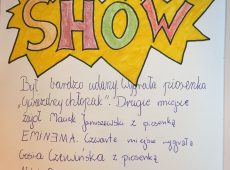 SHOW
Był bardzo udany. Wygrała piosenka
chłopak". Drugie miejsce
zajął Marek Januszewski z piosenką
EMINEMA. Czwarte miejsce wygrała
Gosia Czerwińska z piosenką